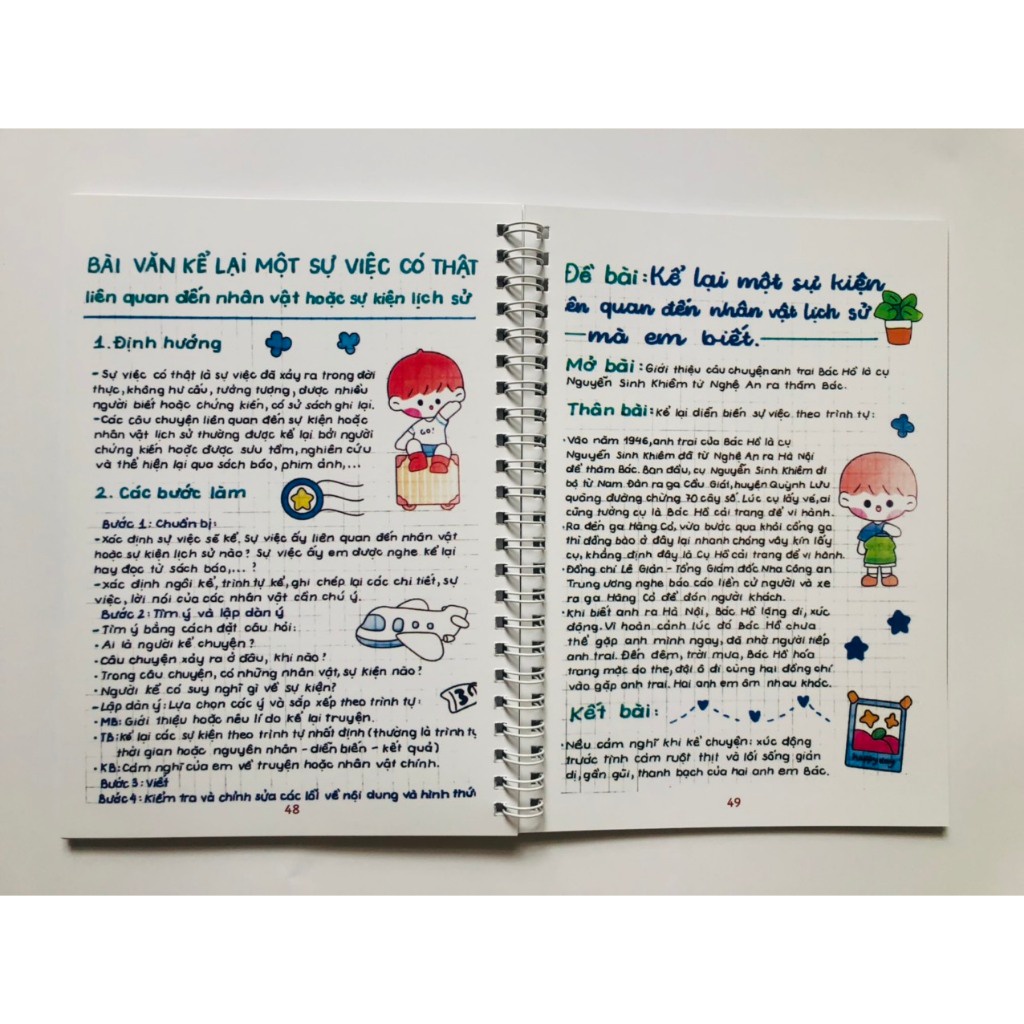 BÀI VĂN KỂ LẠI MỘT SỰ VIỆC CÓ THẬT
liên quan đến nhân vật hoặc sự kiện lịch sử
1. Định hướng
- Sự việc có thật là sự việc đã xảy ra trong đời
thực, không hư cấu, tưởng tượng, được nhiều
người biết hoặc chứng kiến, có sử sách ghi lại.
- Các câu chuyện liên quan đến sự kiện hoặc
nhân vật lịch sử thường được kể lại bởi người
chứng kiến hoặc được sưu tầm, nghiên cứu
và thể hiện lại qua sách báo, phim ảnh,...
GO!
2. Các bước làm
Bước 1: Chuẩn bị:
- Xác định sự việc sẽ kể, Sự việc ấy liên quan đến nhân vật
hoặc sự kiện lịch sử nào? Sự việc ấy em được nghe kể lại
hay đọc từ sách báo,... ?
- xác định ngôi kể, trình tự kể, ghi chép lại các chi tiết, sự
việc, lời nói của các nhân vật cần chú ý.
Bước 2: Tìm ý và lập dàn ý
- Tìm ý bằng cách đặt câu hỏi:
• Ai là người kể chuyện?
• Câu chuyện xảy ra ở đâu, khi nào?
• Trong câu chuyện, có những nhân vật, sự kiện nào?
• Người kể có suy nghĩ gì về sự kiện?
- Lập dàn ý: Lựa chọn các ý và sắp xếp theo trình tự:
• MB: Giới thiệu hoặc nêu lí do kể lại truyện.
• TB: kể lại các sự kiện theo trình tự nhất định (thường là trình tự
thời gian hoặc nguyên nhân - diễn biến - kết quả)
• KB: Cảm nghĩ của em về truyện hoặc nhân vật chính.
Bước 3: Viết
Bước 4: Kiểm tra và chỉnh sửa các lỗi về nội dung và hình thức
48
Đề bài: Kể lại một sự kiện
ên quan đến nhân vật lịch sử
mà em biết.
Mở bài: Giới thiệu câu chuyện anh trai Bác Hồ là cụ
Nguyễn Sinh Khiêm từ Nghệ An ra thăm Bác.
Thân bài: Kể lại diễn biến sự việc theo trình tự:
• Vào năm 1946, anh trai của Bác Hồ là cụ
Nguyễn Sinh Khiêm đã từ Nghệ An ra Hà Nội
để thăm Bác. Ban đầu, cụ Nguyễn Sinh Khiêm đi
bộ từ Nam Đàn ra ga Cầu Giát, huyện Quỳnh Lưu
quãng đường chừng 70 cây số. Lúc cụ lấy vé, ai
cũng tưởng cụ là Bác Hồ cải trang để vi hành.
• Ra đến ga Hàng Cỏ, vừa bước qua khỏi cổng ga
thì đồng bào ở đây lại nhanh chóng vây kín lấy
cụ, khẳng định đây là Cụ Hồ cải trang để vi hành.
• Đồng chí Lê Giản - Tổng Giám đốc Nha Công an
Trung ương nghe báo cáo liền cử người và xe
ra ga Hàng Cỏ để đón người khách.
• Khi biết anh ra Hà Nội, Bác Hồ lặng đi, xúc
động. Vì hoàn cảnh lúc đó Bác Hồ chưa
thể gặp anh mình ngay, đã nhờ người tiếp
anh trai. Đến đêm, trời mưa, Bác Hồ hóa
trang mặc áo the, đội ô đi cùng hai đồng chí
vào gặp anh trai. Hai anh em ôm nhau khóc.
Kết bài:
• Nêu cảm nghĩ khi kể chuyện: xúc động
trước tình cảm ruột thịt và lối sống giản
dị, gần gũi, thanh bạch của hai anh em Bác.
49